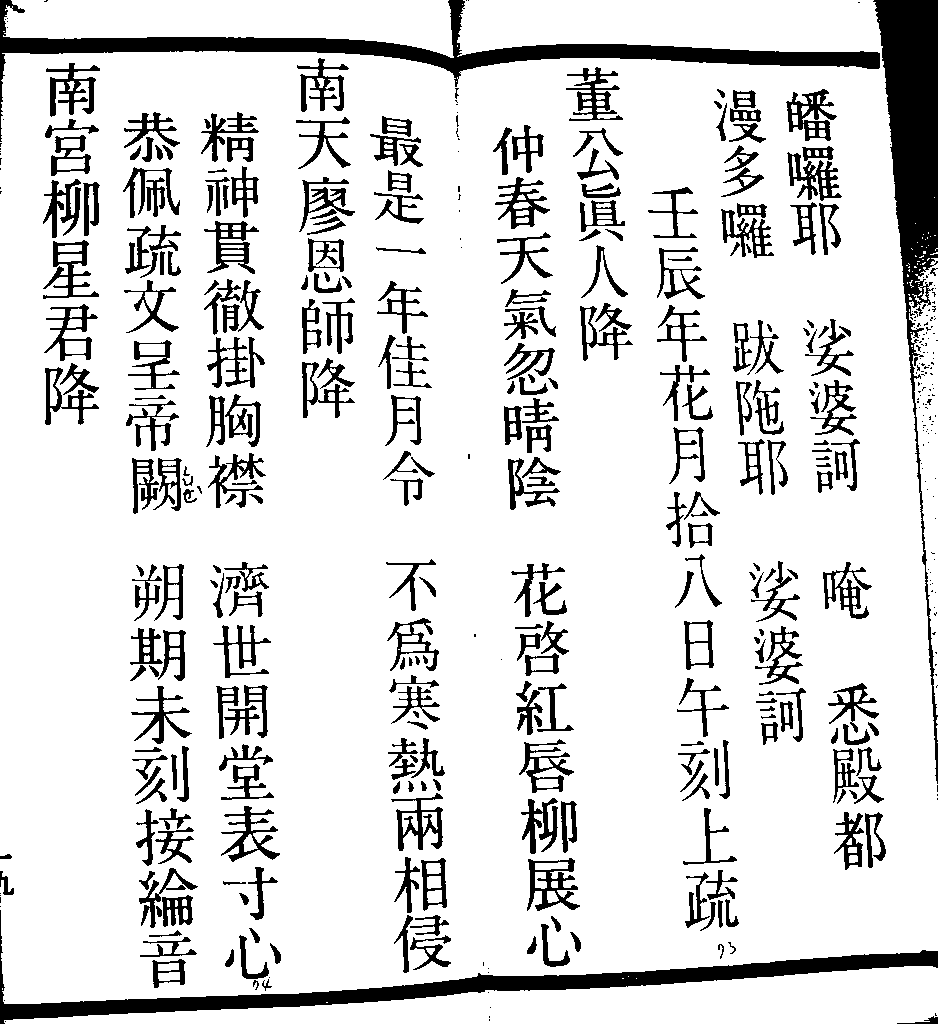 皤囉耶　娑婆訶　唵　悉殿都
漫多囉　跋陁耶　娑婆訶
壬辰年花月拾八日午刻上疏
董公眞人降
仲春天氣忽晴陰　花啓紅唇柳展心
最是一年佳月令　不爲寒熱兩相侵
南天廖恩師降
精神貫徹掛胸襟　濟世開堂表寸心
恭佩疏文呈帝闕　朔期未刻接綸音
南宮柳星君降
93
94